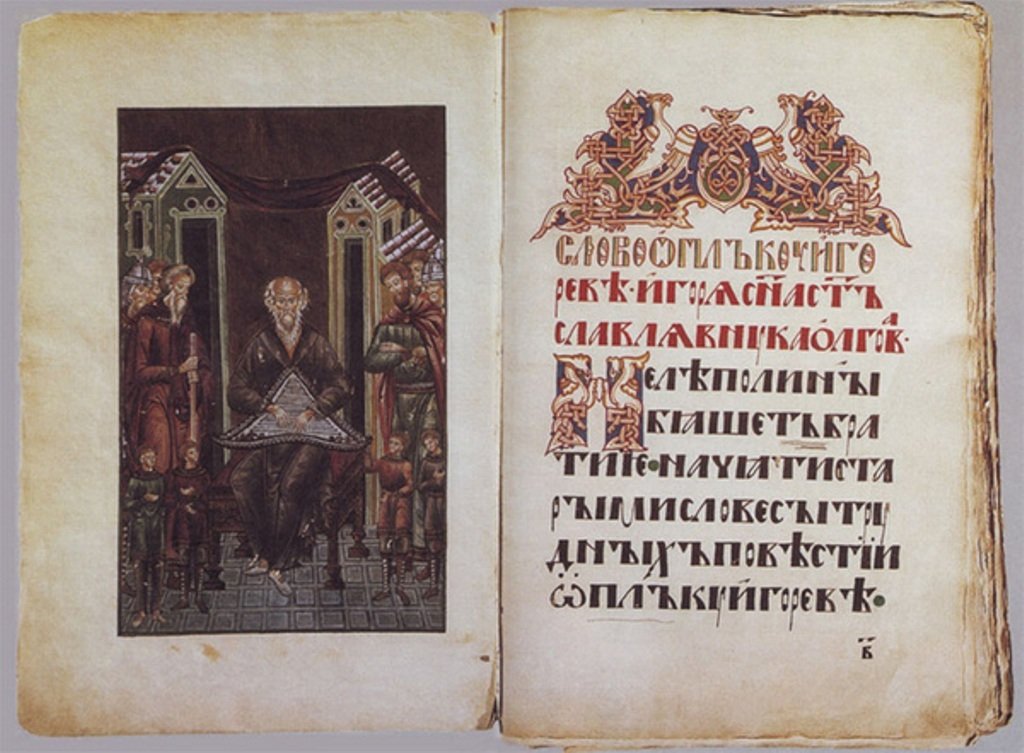 СЛОВО Ѿ ПЛЪКОУ ИГО
РЕВѢ· ИГОРЯ СН҃А СТЪ
СЛАВЛЯ ВНꙊКА ОЛГОВА·
НЕЛѢПО ЛИ НЫ
БꙖШЕТЪ БРА
ТИѤ·НАЧꙖТИ СТА
РЫМИ СЛОВЕСЫ ТРꙊ
ДНЫХЪ ПОВѢСТІИ
Ѿ ПЛЪКꙊ ИГОРЕВѢ·
в҃